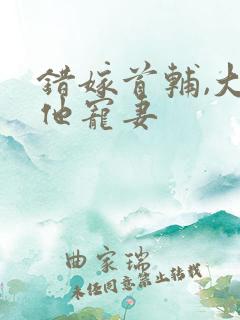 错嫁首辅,大
他宠妻
曲家瑞
未经同意禁止转载